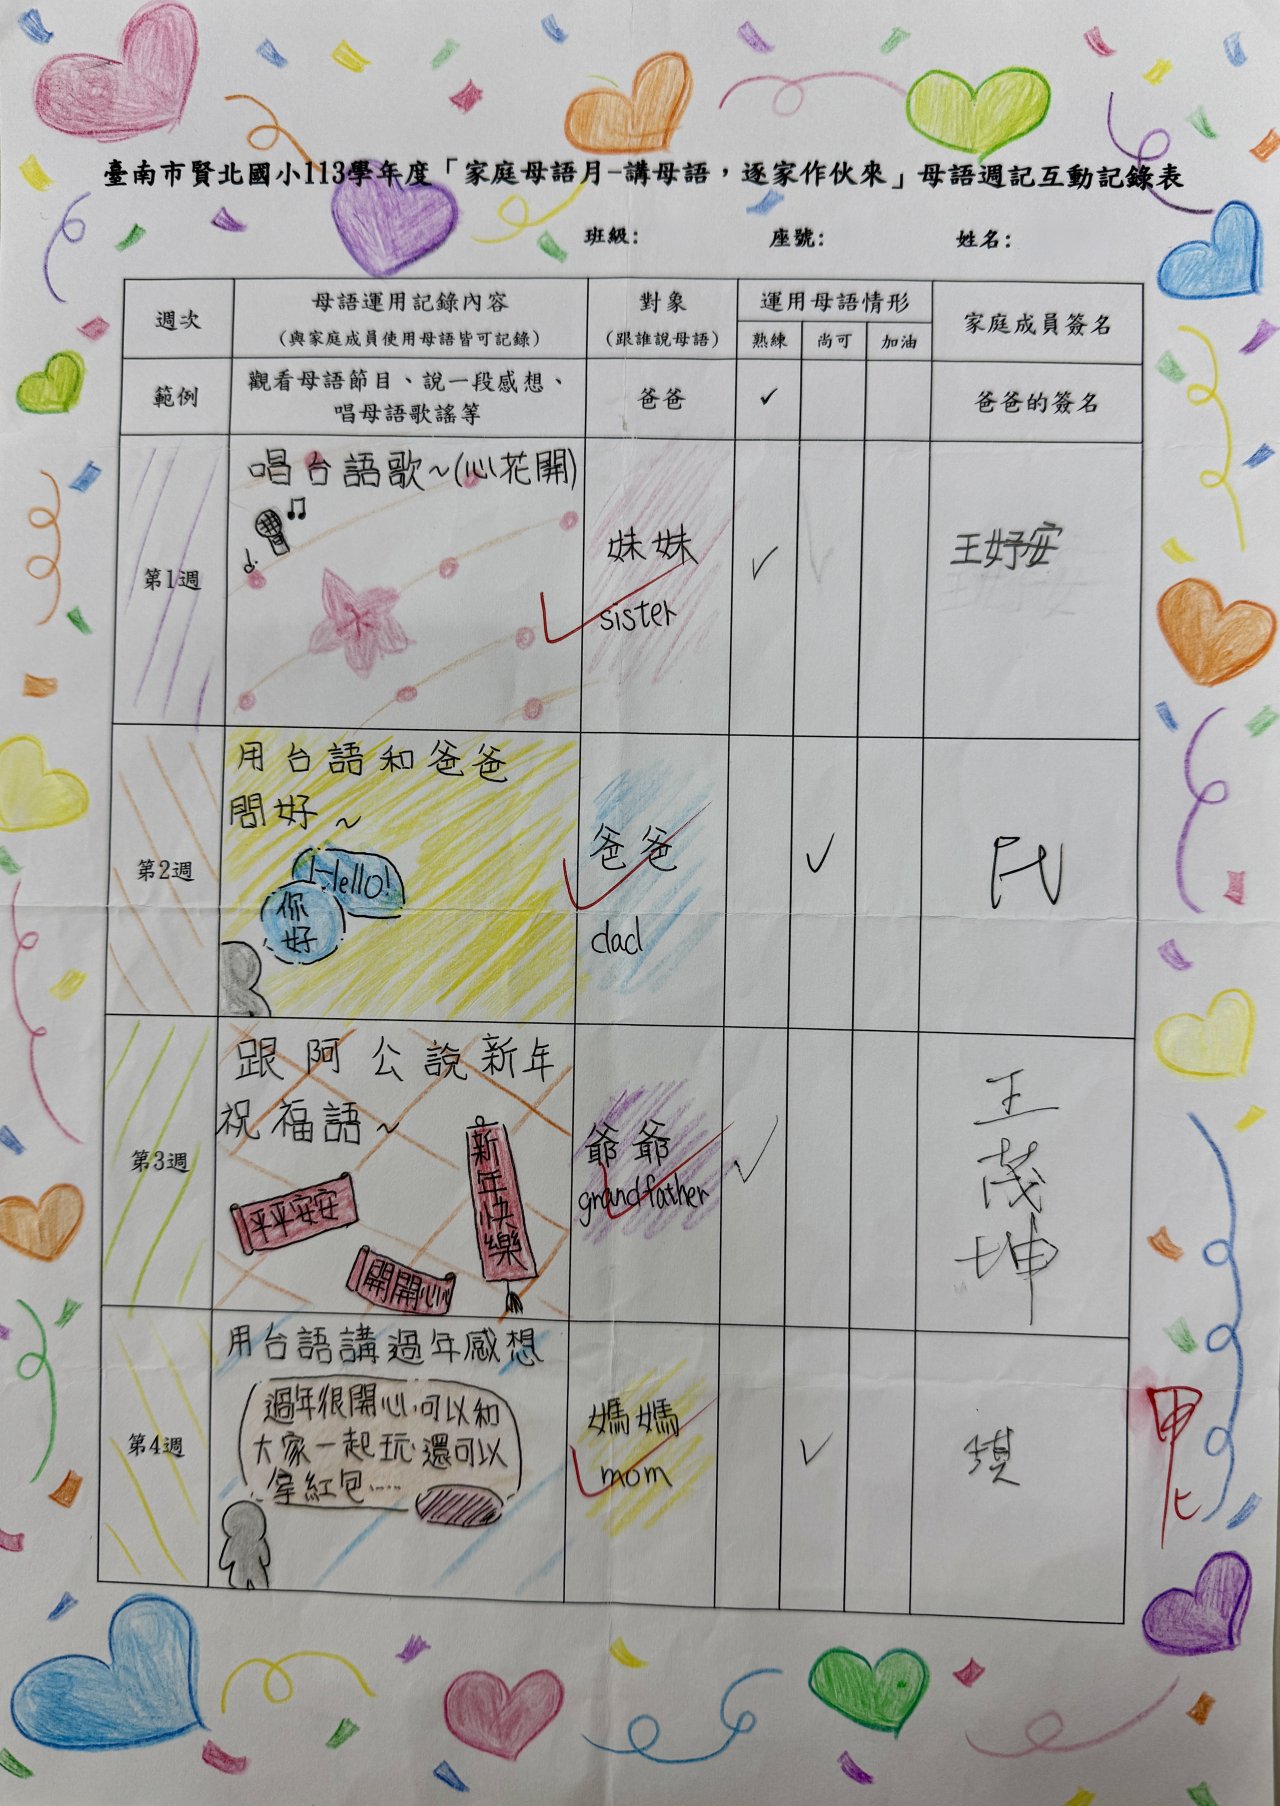 臺南市賢北國小113學年度「家庭母語月-講母語，逐家作伙來」母語週記互動記錄表
班級: 座號: 姓名:
週次 母語運用記錄內容 對象 運用母語情形 家庭成員簽名
(與家庭成員使用母語皆可記錄) (跟誰說母語) 熟練 尚可 加油
範例 觀看母語節目、說一段感想、 爸爸 ✓ 爸爸的簽名
唱母語歌謠等
第1週 唱台語歌~(心花開) 妹妹 ✓ 王妤安
sister
第2週 用台語和爸爸 爸爸 ✓
問好~
Hello!
你好
dad
第3週 跟阿公說新年 爺爺 ✓ 王茂坤
祝福語~
grandfather
新年快樂
平平安安
開開心心
第4週 用台語講過年感想 媽媽 ✓
過年很開心,可以和
大家一起玩,還可以
拿紅包……
mom
甲上